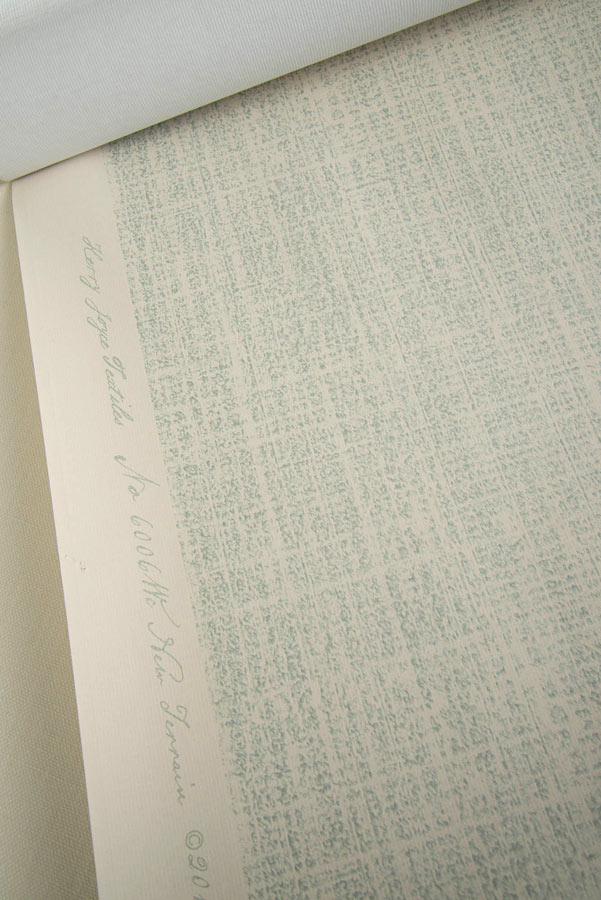 Henry Joyce Textiles No 6006Wc New Terrain ©20